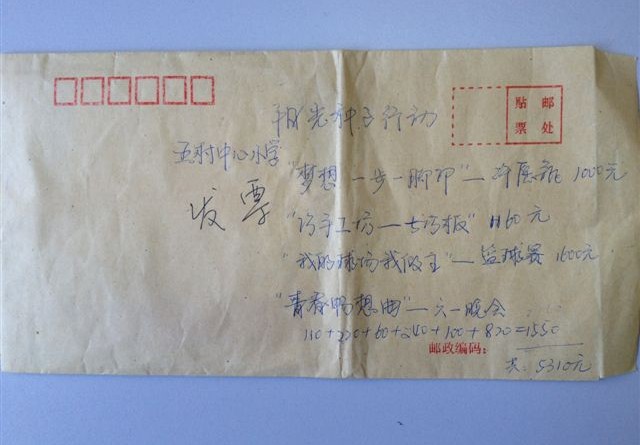 贴邮
票处
阳光种子行动
五村中心小学
"梦想一步一脚印"—许愿瓶 1000元
发票
"巧手工坊—七巧板" 1160元
"我的球场我做主"—篮球赛 1600元
"青春畅想曲"—六一晚会
110+220+60+240+100+820=1550
邮政编码:
共: 5310元